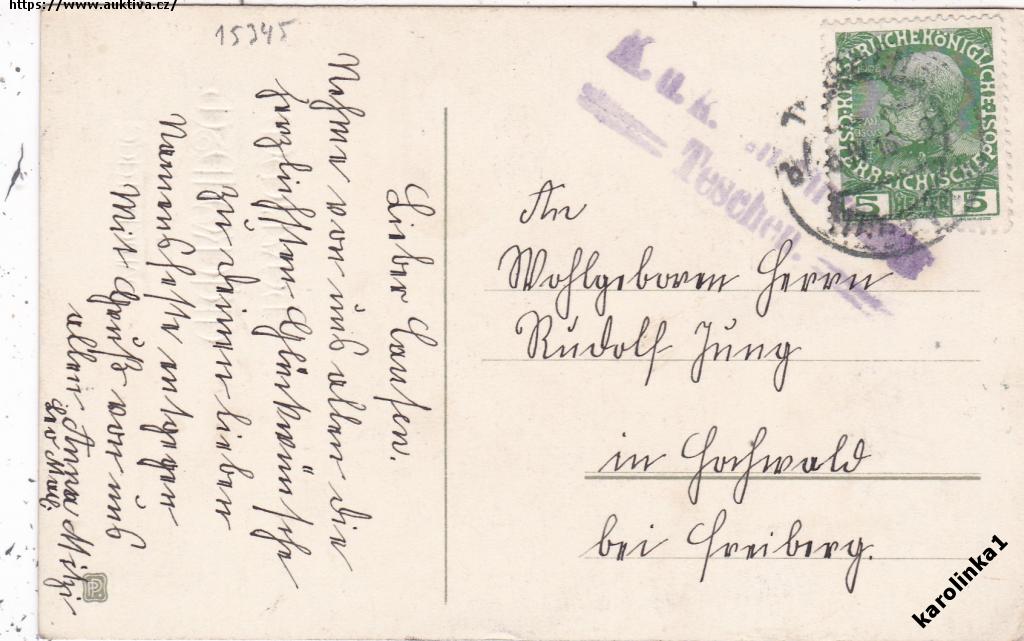 https://www.auktiva.cz/
15345
Lieber
Nehme von uns allen die
herzlichsten Glückwünsche
zu deinem lieben
Namensfeste entgegen
Mit Gruß von uns
allen Anna Mitzi
K. u. k.
Teschen.
KAISERLICHE KÖNIGLICHE
ÖSTERREICHISCHE
5 HELLER 5
An
Wohlgeboren Herrn
Rudolf Jung
in Hochwald
bei Freiberg.
karolinka1